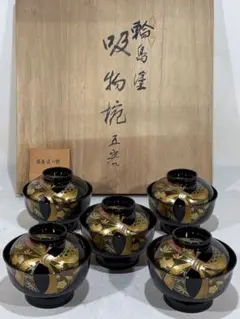 輪島塗
吸物椀
五客